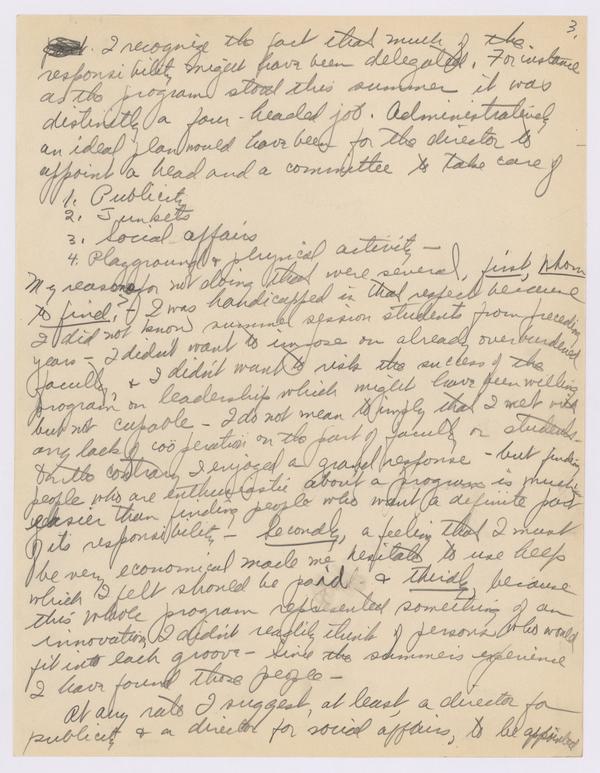 3.
I recognize the fact that much of the
responsibility might have been delegated. For instance
as the program stood this summer it was
distinctly a four-headed job. Administratively
an ideal plan would have been for the director to
appoint a head and a committee to take care of
1. Publicity
2. Junkets
3. Social affairs
4. Playground & physical activity -
My reasons for not doing that were several, first, whom
to find? - I was handicapped in that respect because
I did not know summer session students from preceding
years - I didn't want to impose on already overburdened
faculty, & I didn't want to risk the success of the
program on leadership which might have been willing
but not capable - I do not mean to imply that I met with
any lack of coöperation on the part of faculty or students -
On the contrary I enjoyed a grand response - but finding
people who are enthusiastic about a program is much
easier than finding people who want a definite part
of its responsibility - Secondly, a feeling that I must
be very economical made me hesitate to use help
which I felt should be paid & thirdly, because
this whole program represented something of an
innovation, I didn't readily think of persons who would
fit into each groove - Since the summer's experience
I have found those people -
At any rate I suggest, at least, a director for
publicity & a director for social affairs, to be appointed